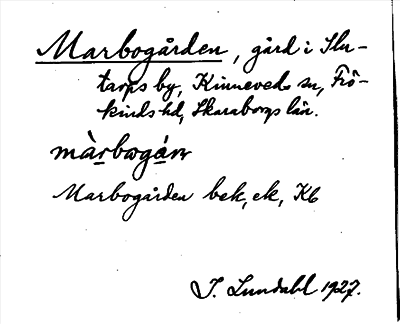 Marbogården, gård i Slu-
tarps by, Kinneveds sn, Frö-
kinds hd, Skaraborgs län.
màrbwgán
Marbogården bek, ek, Kb
J. Lundahl 1927.